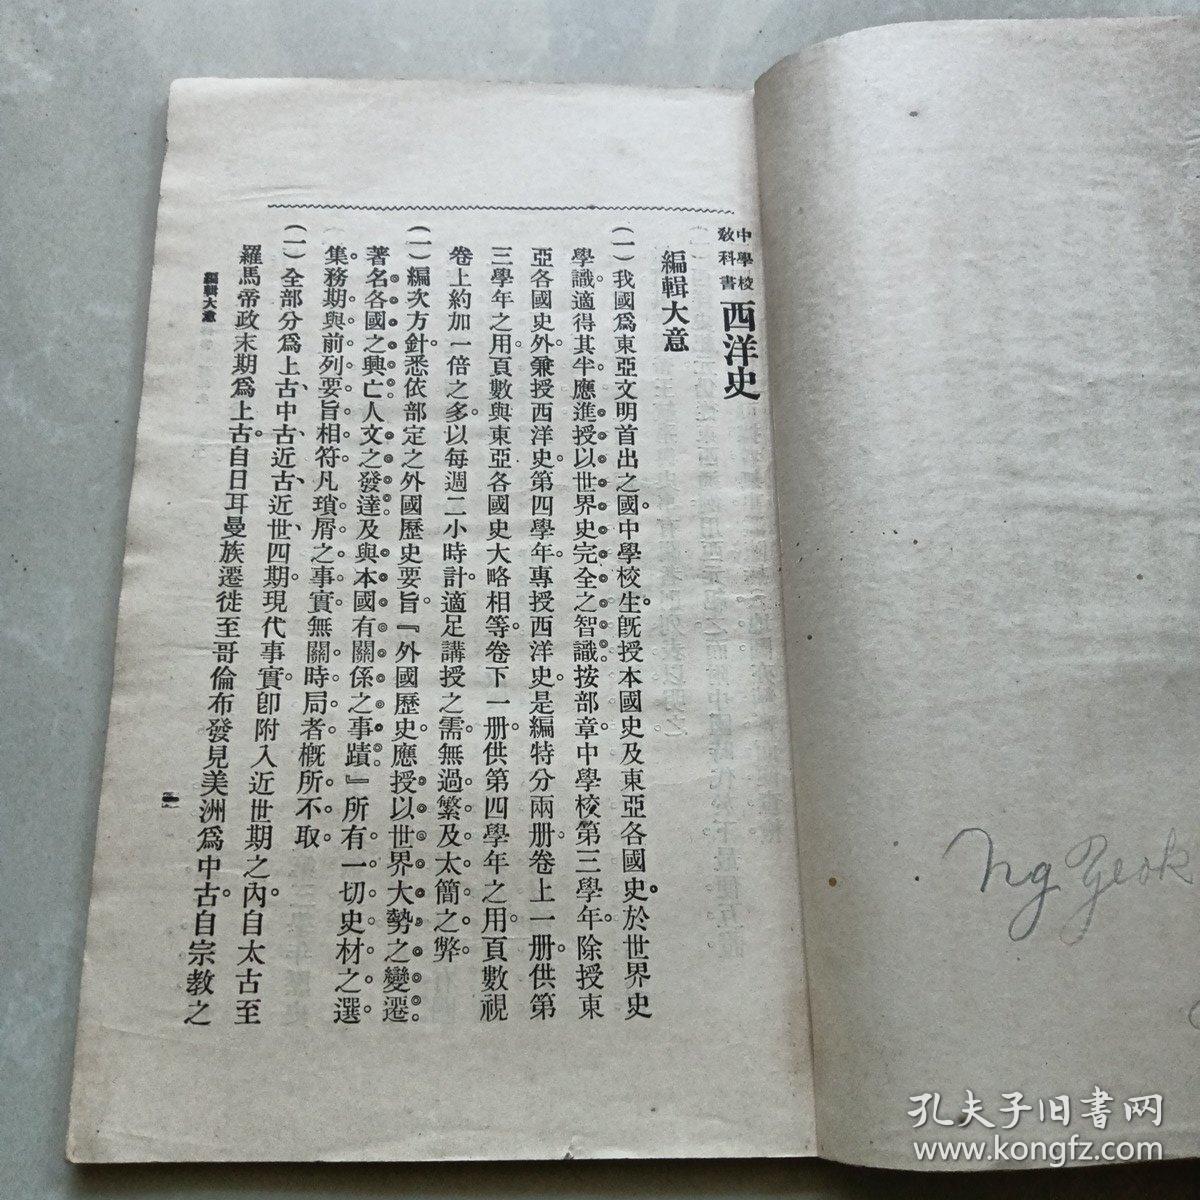 中學校
教科書
西洋史
編輯大意
(一)我國爲東亞文明首出之國。中學校生。旣授本國史及東亞各國史。於世界史
學識。適得其半。應進授以世界史完全之智識。按部章中學校第三學年。除授東
亞各國史外。兼授西洋史。第四學年。專授西洋史。是編特分兩册。卷上一册。供第
三學年之用。頁數與東亞各國史大略相等。卷下一册。供第四學年之用。頁數視
卷上約加一倍之多。以每週二小時計。適足講授之需。無過繁及太簡之弊。
(一)編次方針。悉依部定之外國歷史要旨。『外國歷史應授以世界大勢之變遷。
著名各國之興亡。人文之發達。及與本國有關係之事蹟』所有一切史材之選
集。務期與前列要旨相符。凡瑣屑之事實。無關時局者。槪所不取。
(一)全部分爲上古、中古、近古、近世、四期。現代事實。卽附入近世期之內。自太古至
羅馬帝政末期爲上古。自日耳曼族遷徙至哥倫布發見美洲爲中古。自宗教之
編輯大意
一
Ng Geok
孔夫子旧书网
www.kongfz.com